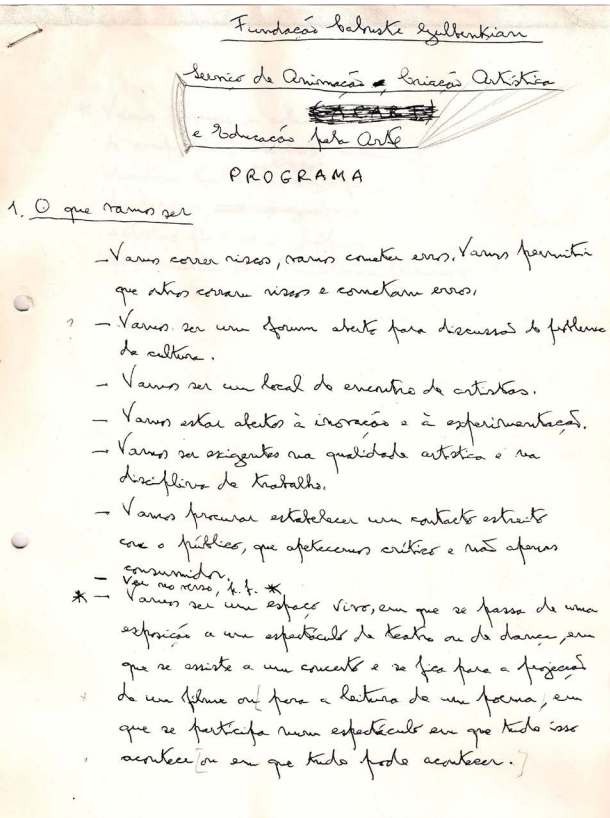 Fundação Calouste Gulbenkian
Serviço de Animação, Criação Artística
(ACARTE)
e Educação pela Arte
PROGRAMA
1. O que vamos ser
- Vamos correr riscos, vamos cometer erros. Vamos permitir
que outros corram riscos e cometam erros.
? - Vamos ser um forum aberto para discussão do problema
da cultura.
- Vamos ser um local de encontro de artistas.
- Vamos estar abertos à inovação e à experimentação.
- Vamos ser exigentes na qualidade artística e na
disciplina de trabalho.
- Vamos procurar estabelecer um contacto estreito
com o público, que apetecemos crítico e não apenas
consumidor.
- Ver no verso, p. f. *
* - Vamos ser um espaço vivo, em que se passa de uma
exposição a um espectáculo de teatro ou de dança, em
que se assiste a um concerto e se fica para a projecção
de um filme ou para a leitura de um poema, em
que se participa num espectáculo em que tudo isso
acontece [ou em que tudo pode acontecer.]